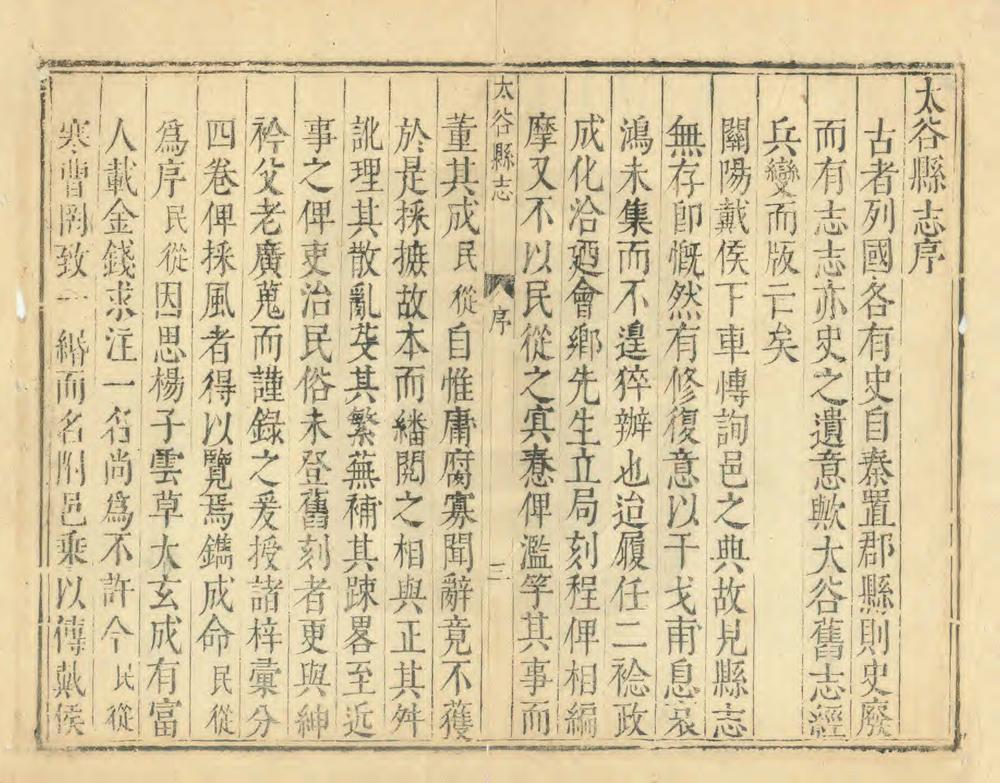 太谷縣志序
古者列國各有史自秦置郡縣則史廢
而有志志亦史之遺意歟太谷舊志經
兵變而版亡矣
關陽戴侯下車慱詢邑之典故見縣志
無存卽慨然有修復意以干戈甫息哀
鴻未集而不遑猝辦也迨履任二稔政
成化洽廼會鄉先生立局刻程俾相編
摩又不以民從之寡惷俾濫竽其事而
太谷縣志
序
三
董其成民從自惟庸腐寡聞辭竟不獲
於是採摭故本而繙閱之相與正其舛
訛理其散亂芟其繁蕪補其踈畧至近
事之俾吏治民俗未登舊刻者更與紳
衿父老廣蒐而謹錄之爰授諸梓彙分
四卷俾採風者得以覽焉鐫成命民從
爲序民從因思楊子雲草太玄成有富
人載金錢求注一名尚爲不許今民從
寒曹罔致一緡而名附邑乘以傳戴侯